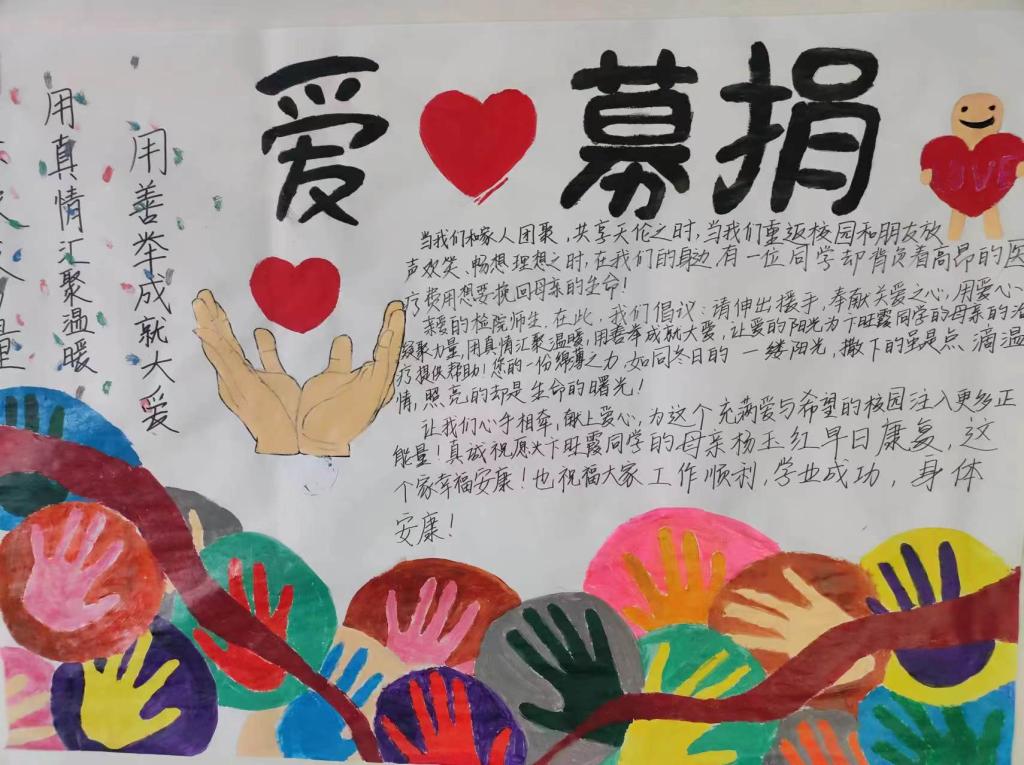 爱 募捐
LOVE
用善举成就大爱
用真情汇聚温暖
量
当我们和家人团聚，共享天伦之时，当我们重返校园和朋友放
声欢笑、畅想理想之时，在我们的身边，有一位同学却背负着高昂的医
疗费用想要挽回母亲的生命！
亲爱的检院师生，在此，我们倡议：请伸出援手，奉献关爱之心，用爱心
凝聚力量，用真情汇聚温暖，用善举成就大爱，让爱的阳光为卞旺霞同学的母亲的治
疗提供帮助！您的一份绵薄之力，如同冬日的一缕阳光，撒下的虽是点滴温
情，照亮的却是生命的曙光！
让我们心手相牵，献上爱心，为这个充满爱与希望的校园注入更多正
能量！真诚祝愿卞旺霞同学的母亲杨玉红早日康复，这
个家幸福安康！也祝福大家工作顺利，学业成功，身体
安康！